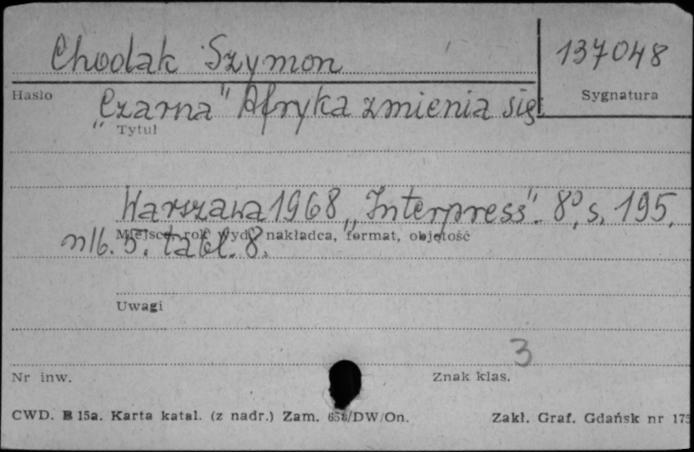 Chodak Szymon
137048
Hasło
Sygnatura
"Czarna" Afryka zmienia się.
Tytuł
Warszawa 1968 „Interpress". 8°, s. 195,
Miejsce, rok wyd., nakładca, format, objętość
nlb. 5. tabl. 8.
Uwagi
3
Nr inw.
Znak klas.
CWD. B 15a. Karta katal. (z nadr.) Zam. /DW/On.
Zakł. Graf. Gdańsk nr 175